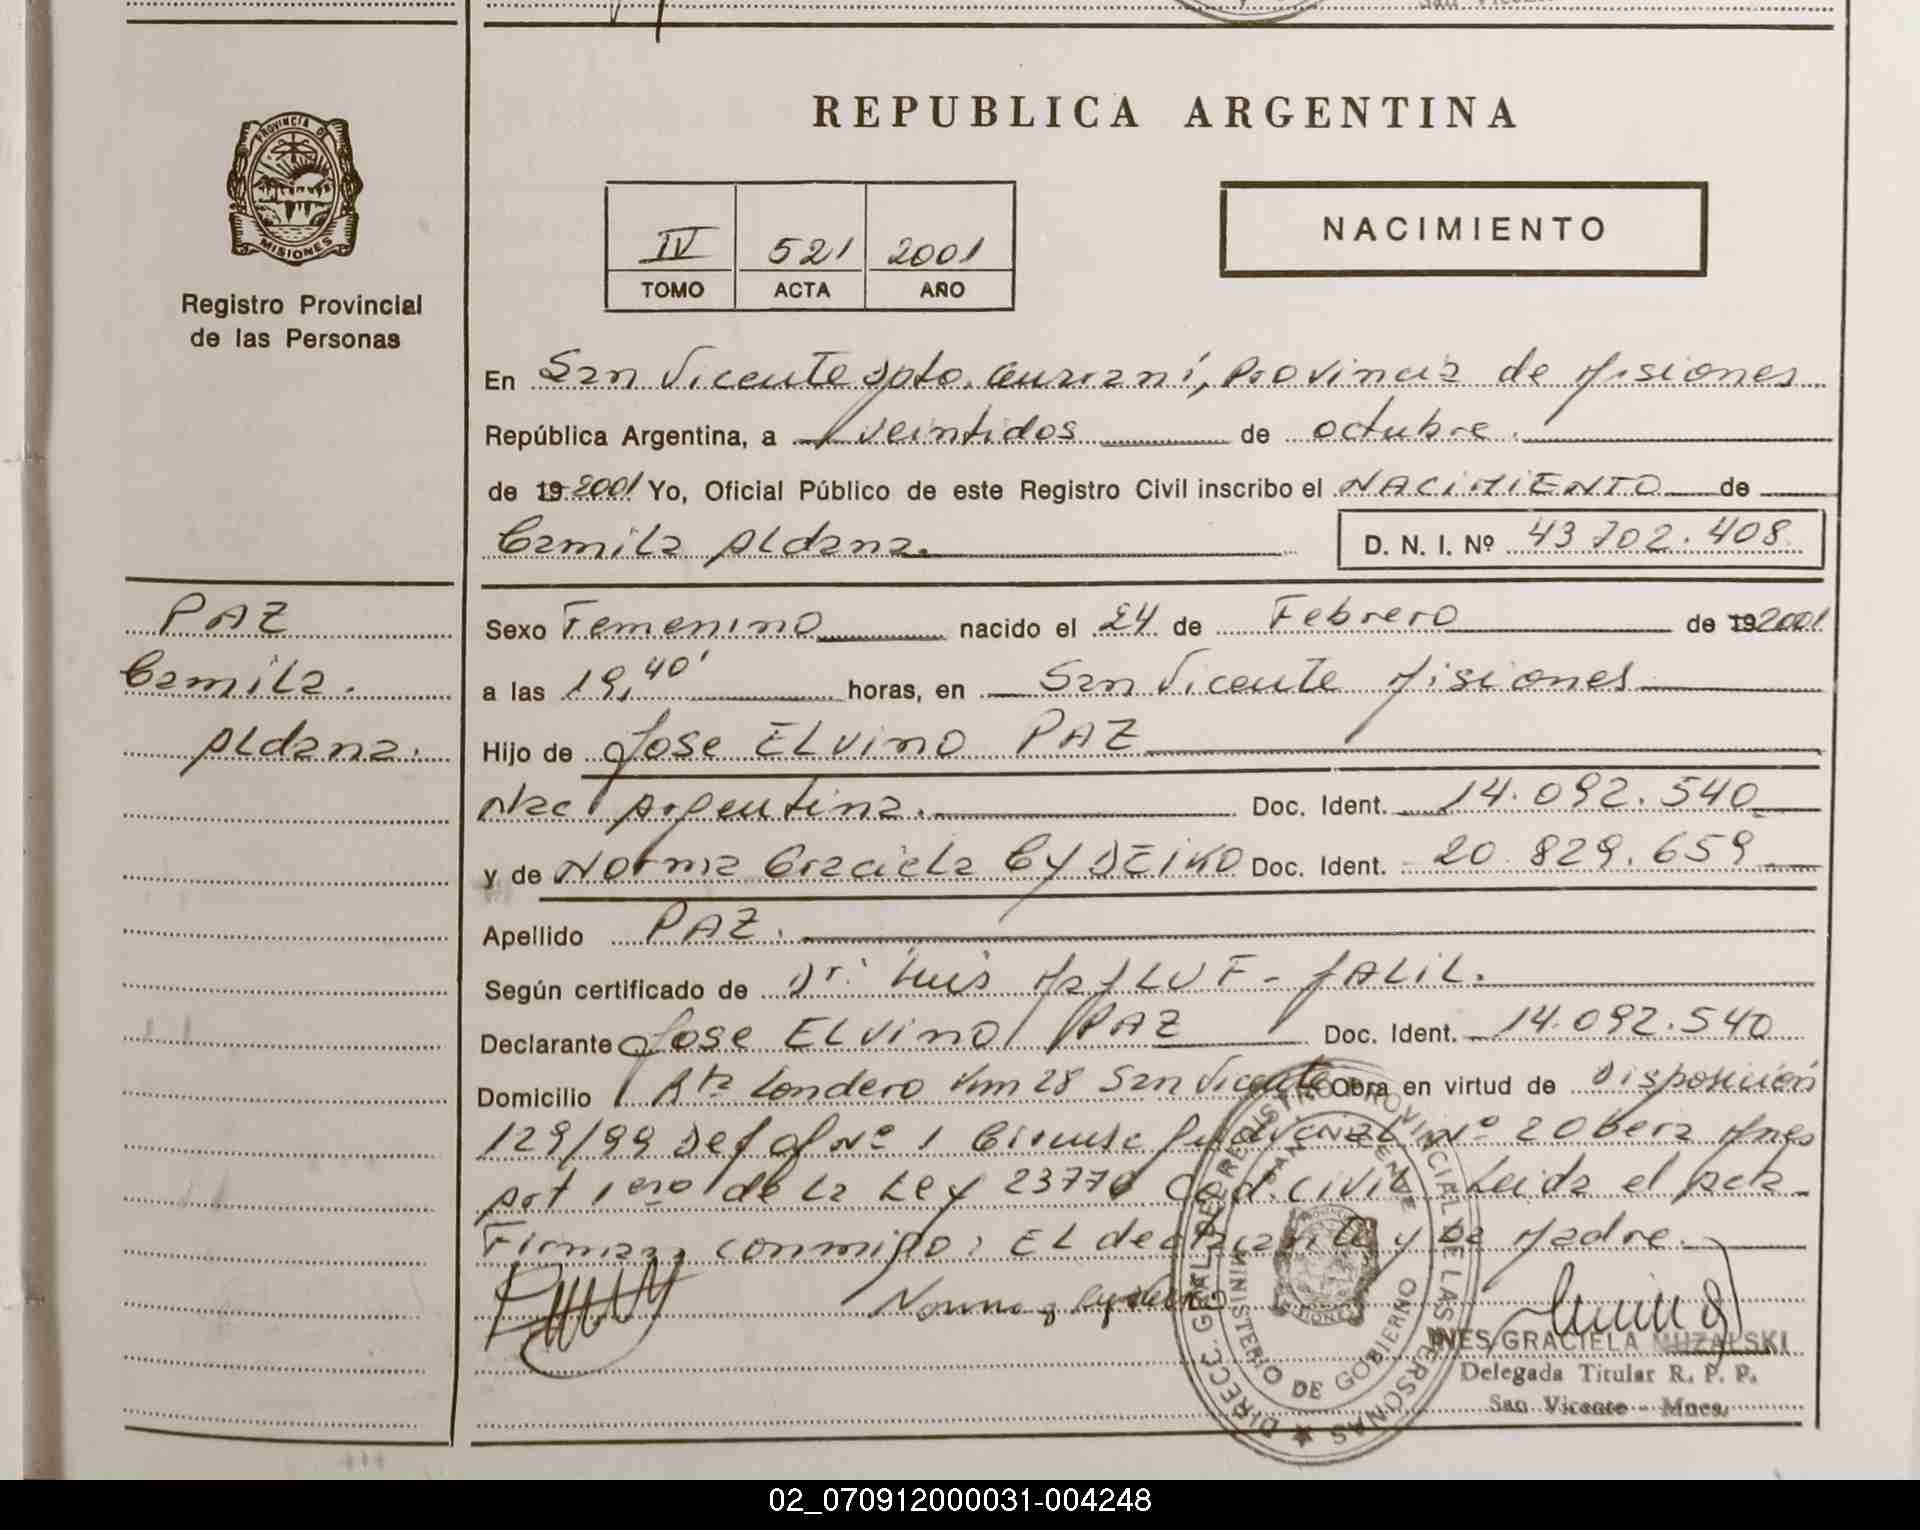 REPUBLICA ARGENTINA
PROVINCIA DE
MISIONES
Registro Provincial
de las Personas
IV 521 2001
TOMO ACTA AÑO
NACIMIENTO
En San Vicente Dpto. Guaraní, Provincia de Misiones
República Argentina, a veintidos de octubre.
de 19 2001 Yo, Oficial Público de este Registro Civil inscribo el NACIMIENTO de
Camila Aldana. D. N. I. Nº 43 702.408
PAZ
Camila.
Aldana.
Sexo Femenino nacido el 24 de Febrero de 19 2001
a las 19,40' horas, en San Vicente Misiones
Hijo de Jose ELvino PAZ
Nac Argentina. Doc. Ident. 14.092.540
y de Norma Graciela CYDEIKO Doc. Ident. 20 829.659
Apellido PAZ.
Según certificado de Dr. Luis JALIL.
Declarante Jose ELvino PAZ Doc. Ident. 14.092.540
Domicilio Rta Londero Km 28 San Vicente Obra en virtud de Disposición
129/99 Def of Nº 1 Nº 2 Obera Mnes
Art 1ero de La Ley 23776 Cod. Civil Leida el Acta
Firman conmigo: EL declarante y La Madre.
DIRECC. GRAL. DEL REGISTRO PROVINCIAL DE LAS PERSONAS
MINISTERIO DE GOBIERNO
SAN VICENTE
INES GRACIELA MUZALSKI
Delegada Titular R. P. P.
San Vicente - Mnes.
02_070912000031-004248